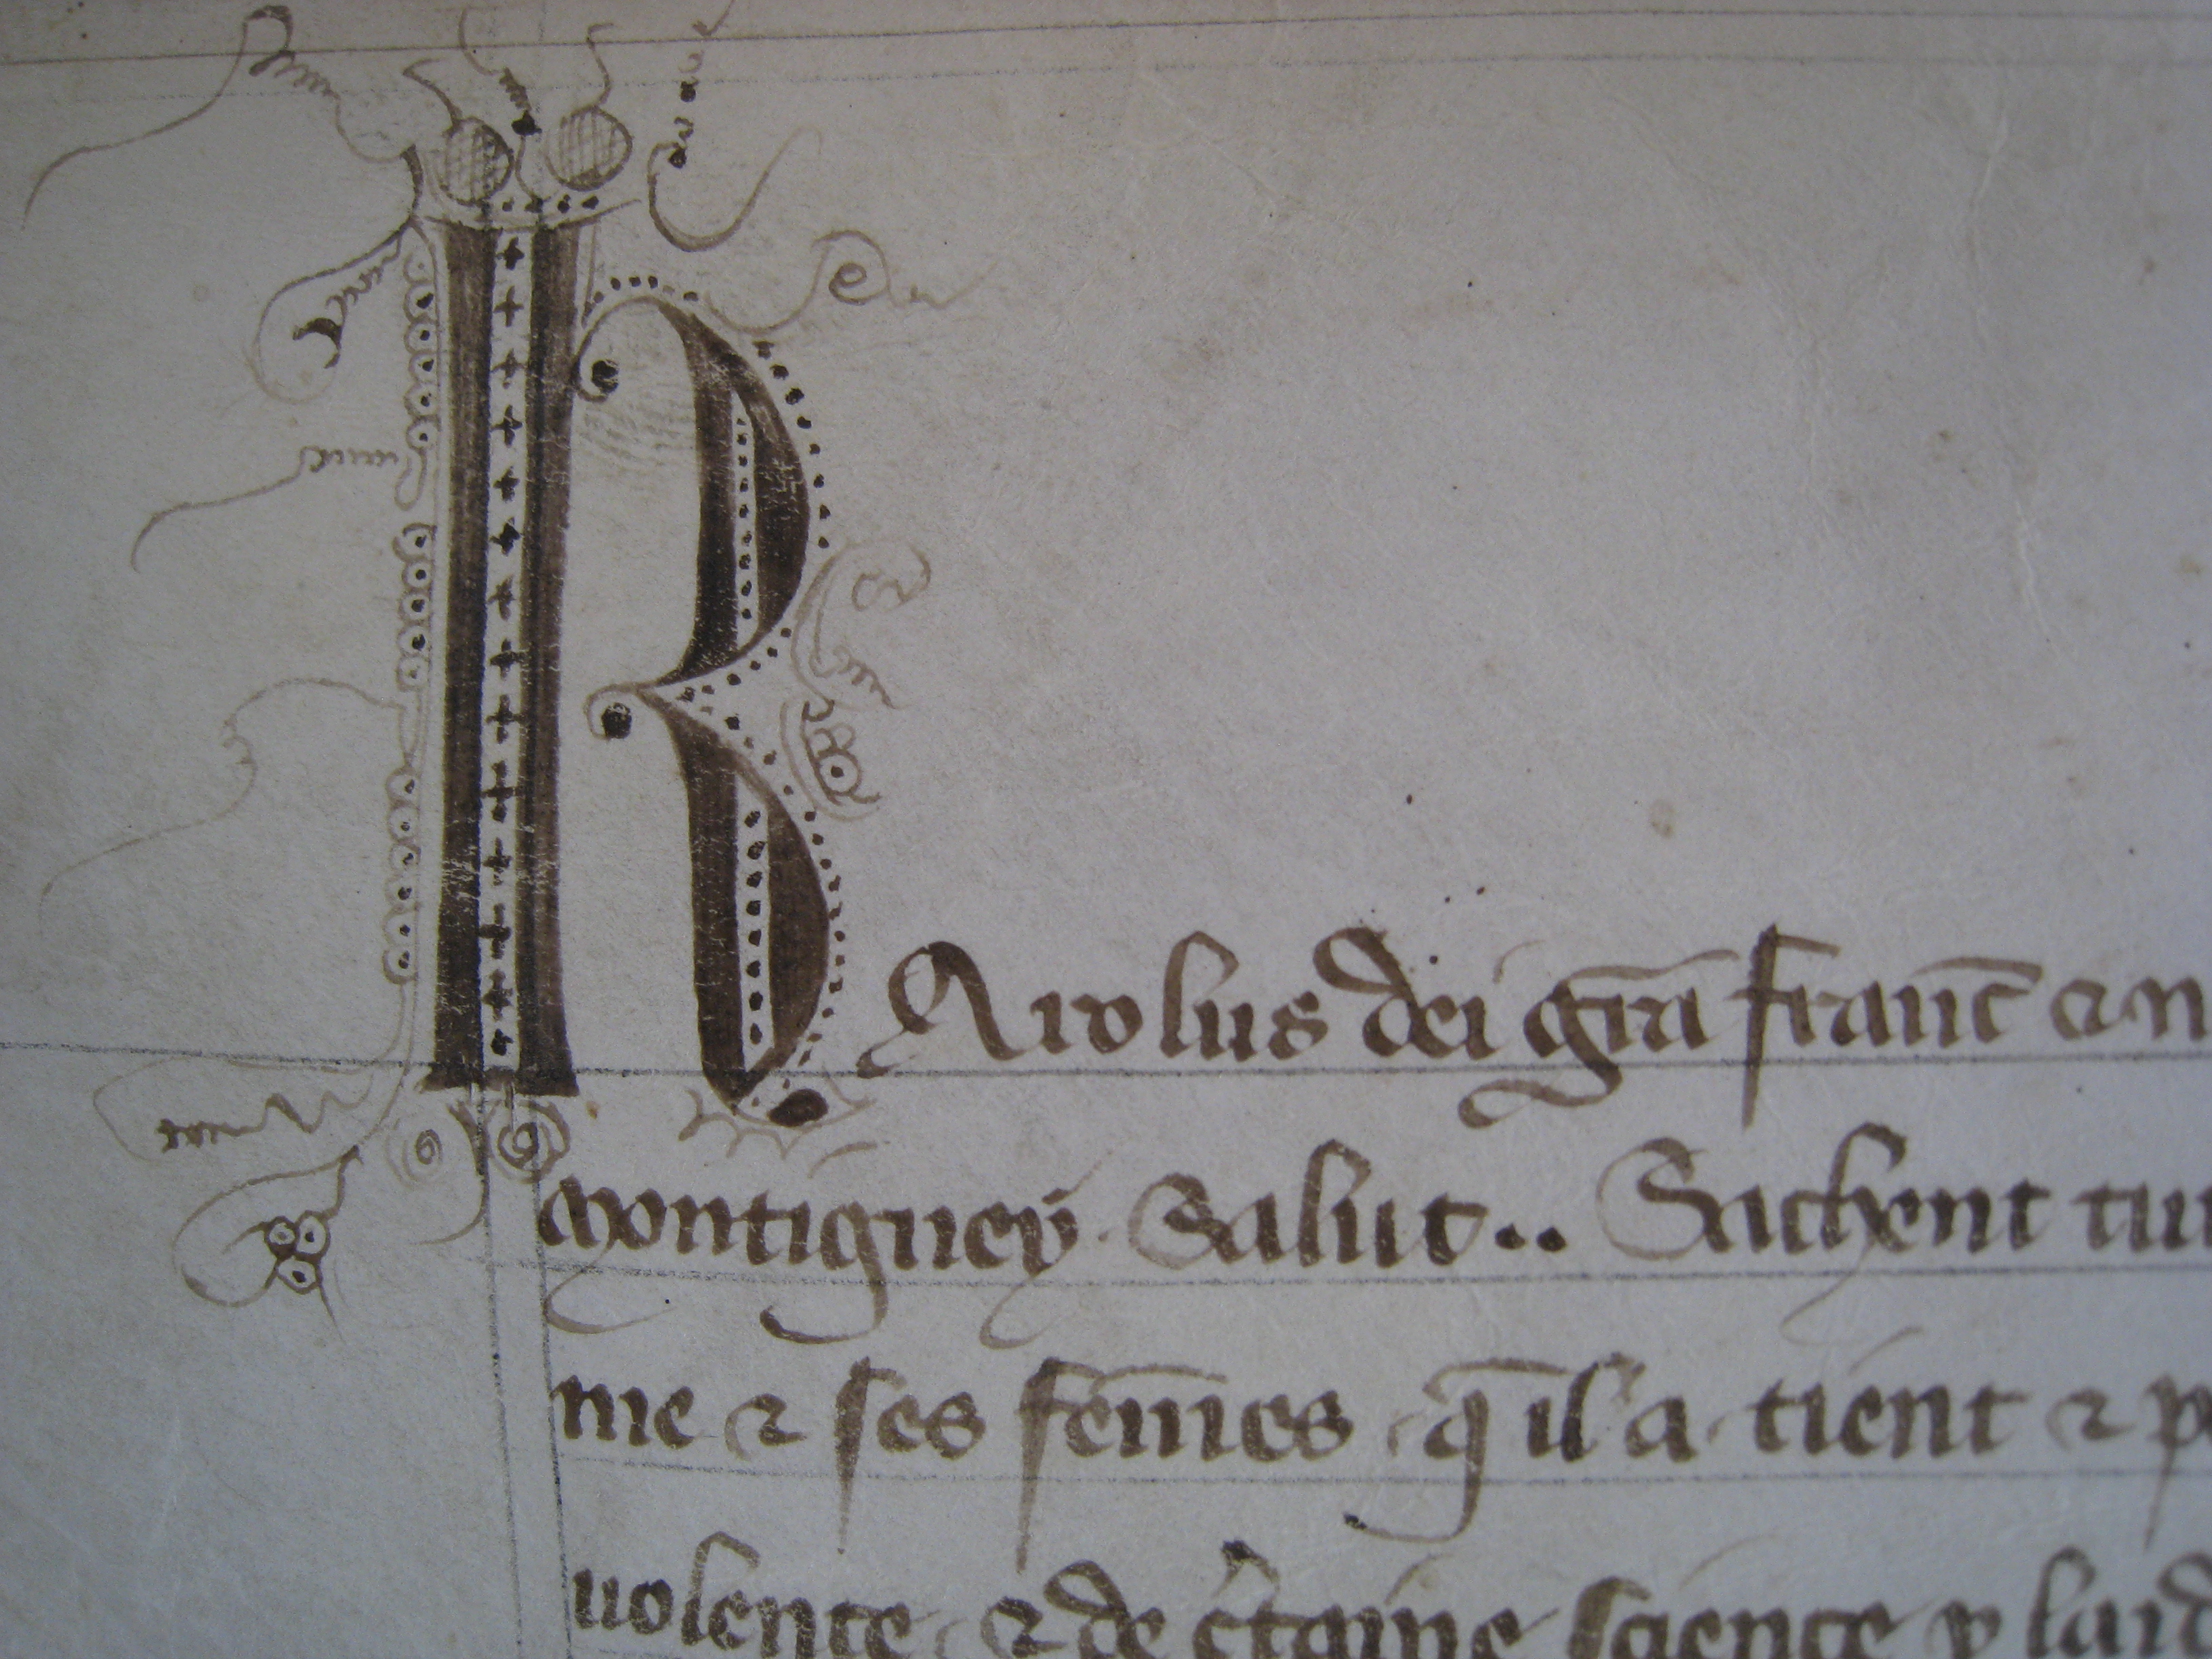 KArolus dei gr̄a franc̄ & n
montigney Salut.. Sachent tui
me & ses fem̄es q̄ il a tient & p
uolente & de c̄taine science p laid